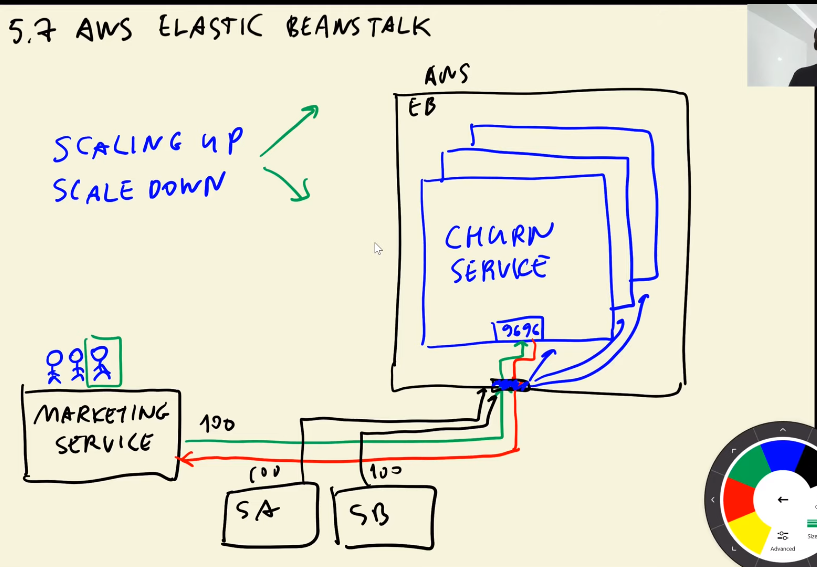 5.7 AWS ELASTIC BEANSTALK
AWS
EB
SCALING UP
SCALE DOWN
CHURN
SERVICE
9696
MARKETING
SERVICE
100
100
100
SA
SB
Advanced
Size